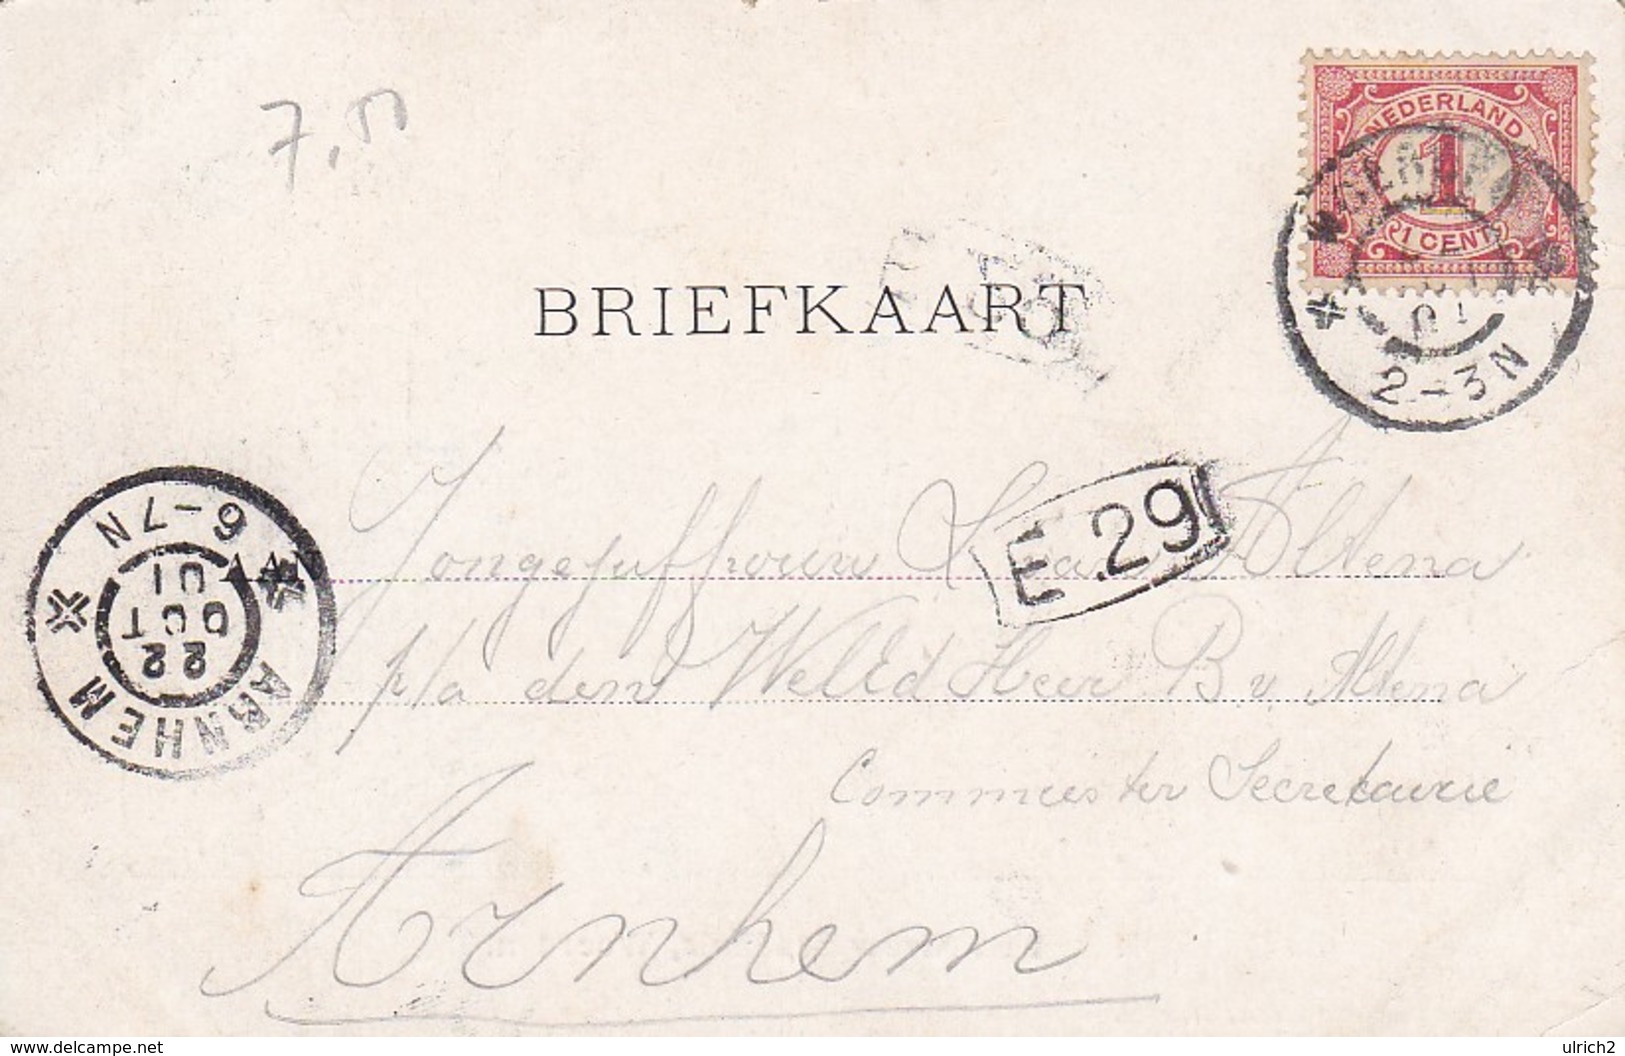 7,50
NEDERLAND
1
1 CENT
01
2-3N
BRIEFKAART
E.29
6-7N
22
OCT
01
ARNHEM
Jongejuffrouw L van Altena
p/a den WelEd Heer B v. Altena
Secretaurie
Arnhem
www.delcampe.net
ulrich2